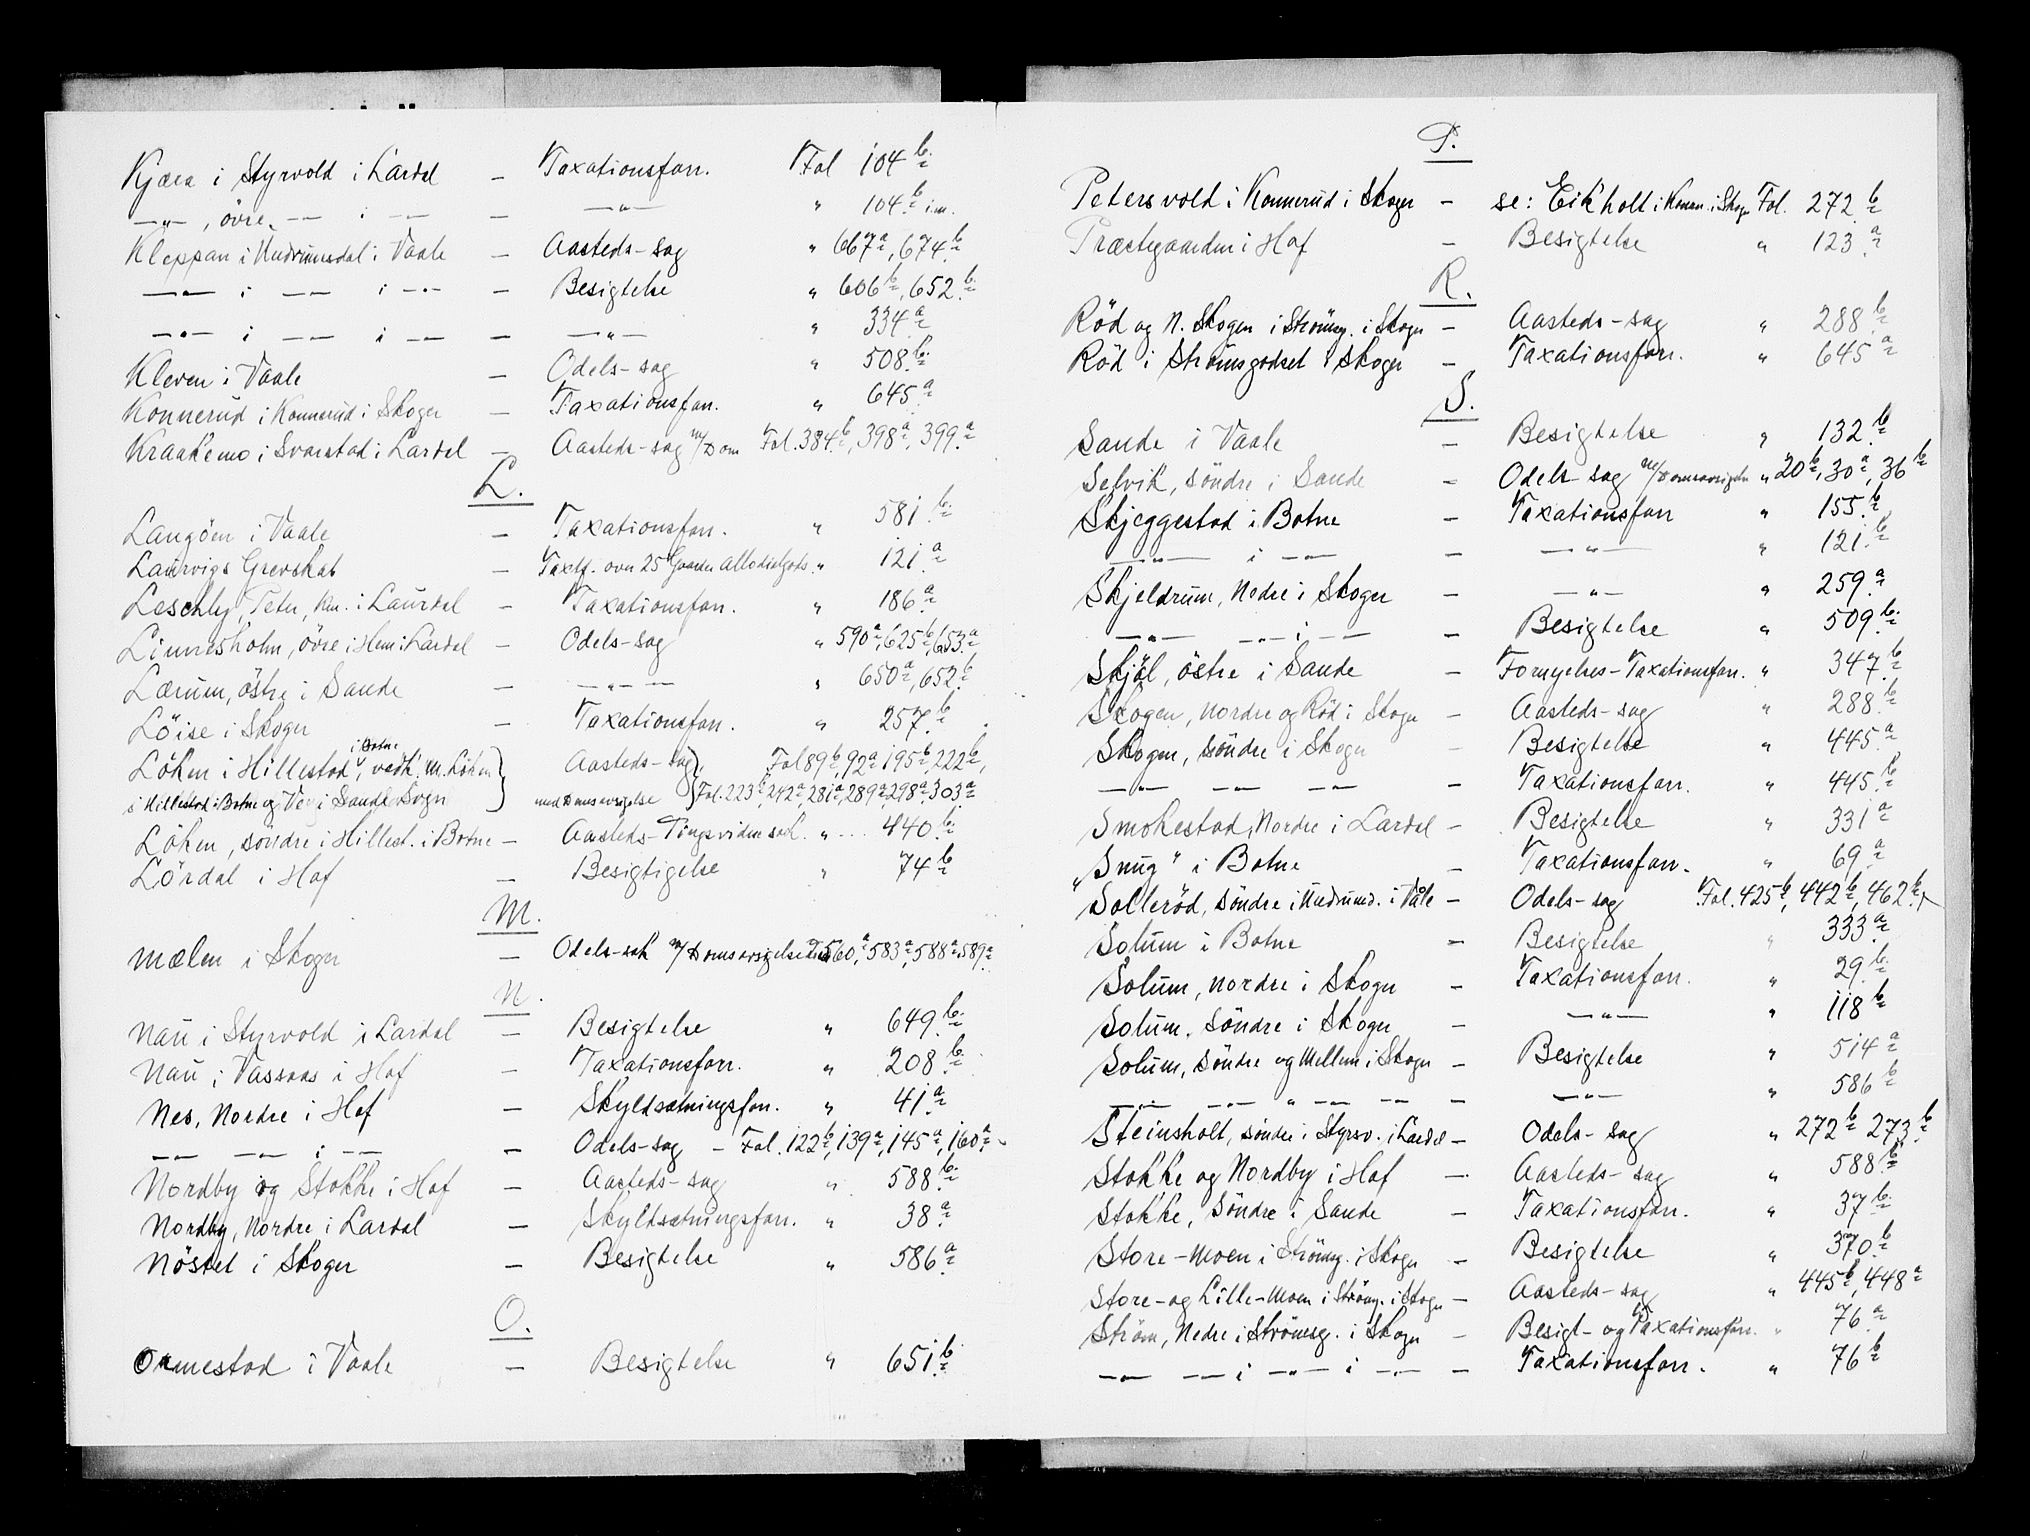 Kjæra i Styrvold i Lardal – Taxationsforr. Fol 104 b.
—"—, övre — i — – —"— " 104 b. i.m.
Kleppan i Undrumsdal i Vaale – Aasteds-sag " 667 a, 674 b.
—"— i —— i —"— – Besigtelse " 606 b, 652 b.
—"— i —— i —— – —"— " 334 a
Kleven i Vaale – Odels-sag " 508 b.
Konnerud i Konnerud i Skoger – Taxationsforr. " 645 a
Kraakemo i Svarstad i Lardal – Aasteds-sag m/Dom Fol. 384 b, 398 a, 399 a
L.
Langöen i Vaale – Taxationsforr. " 581 b.
Laurvigs Grevskab – Taxtf. over 25 Gaarder Allodialgods. " 121 a
Leschly, Peter, i Laurdal – Taxationsforr. " 186 a
Linnesholm, övre i Hem i Lardal – Odels-sag " 590 a, 625 b, 653 a
Lærum, östre i Sande – —"— " 650 a, 652 b
Löise i Skoger – Taxationsforr. " 257 b.
Löken i Hillestad i Botne, vedk. m. Löken } Aasteds-sag } Fol 89 b, 92 a 195 b, 222 b,
i Hillestad i Botne og Ve i Sande Sogn } med Domsavsigelse } Fol. 223 b, 242 a, 281 a, 289 a 298 a, 303 a
Löken, söndre i Hillest. i Botne – Aasteds-Tingsvidnesak. " ... 440 b.
Lördal i Hof – Besigtigelse " 74 b
M.
Mælen i Skoger – Odels-sak m/Domsavsigelse 560 a, 583 a, 588 a 589 a
N.
Nau i Styrvold i Lardal – Besigtelse " 649 b.
Nau i Vassaas i Hof – Taxationsforr. " 208 b.
Nes, Nordre i Hof – Skyldsætningsforr. " 41 a
—— —— i —— – Odels-sag – Fol. 122 b, 139 a, 145 a, 160 a
Nordby og Stokke i Hof – Aasteds-sag " 588 b.
Nordby, Nordre i Lardal – Skyldsætningsforr. " 38 a
Nöstet i Skoger – Besigtelse " 586 a
O.
Ormestad i Vaale – Besigtelse " 651 b.
P.
Petersvold i Konnerud i Skoger – se: Eikholt i Konn. i Skoger Fol. 272 b
Præstegaarden i Hof – Besigtelse " 123 a
R.
Röd og N. Skogen i Strömsg. i Skoger – Aasteds-sag " 288 b
Röd i Strömsgodset i Skoger – Taxationsforr. " 645 a
S.
Sande i Vaale – Besigtelse " 132 b
Selvik, söndre i Sande – Odels-sag m/Domsavsigelse " 20 b, 30 a, 36 b
Skjeggestad i Botne – Taxationsforr " 155 b
—"— i —— – —"— " 121 b
Skjeldrum, Nedre i Skoger – —"— " 259 a
—"— —"— i —— – Besigtelse " 509 b.
Skjöl, östre i Sande – Fornyelses-Taxationsforr. " 347 b
Skogen, nordre og Röd i Skoger – Aasteds-sag " 288 b
Skogen, söndre i Skoger – Besigtelse " 445 a
—— —— —— – Taxationsforr. " 445 b
Smokestad, Nordre i Lardal – Besigtelse " 331 a
"Snug" i Botne – Taxationsforr. " 69 a
Solleröd, söndre i Undrumd. i Våle – Odels-sag Fol. 425 b, 442 b, 462 b.
Solum i Botne – Besigtelse " 333 a
Solum, nordre i Skoger – Taxationsforr. " 29 b.
Solum, söndre i Skoger – —"— " 118 b
Solum, söndre og Mellem i Skoger – Besigtelse " 514 a
—"— —"— " —— —— – —"— " 586 b
Steinsholt, söndre i Styrsv. i Lardal – Odels-sag " 272 b 273 b.
Stokke og Nordby i Hof – Aasteds-sag " 588 b
Stokke, Söndre i Sande – Taxationsforr. " 37 b.
Store-Moen i Strömsg. i Skoger – Besigtelse " 370 b
Store- og Lille-Moen i Strömsg. i Skoger – Aasteds-sag " 445 b, 448 a
Ström, Nedre i Strömsg. i Skoger – Besigt- og Taxationsforr. " 76 a
—"— —— i —"— i —"— – Taxationsforr. " 76 b